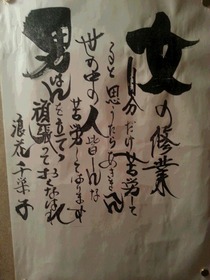 女の修業
自分だけ苦労して
ると思うたらあきまへん
世の中の人皆んな
苦労しております
男はんを立てゝ
頑張っておくなはれ
浪花千栄子